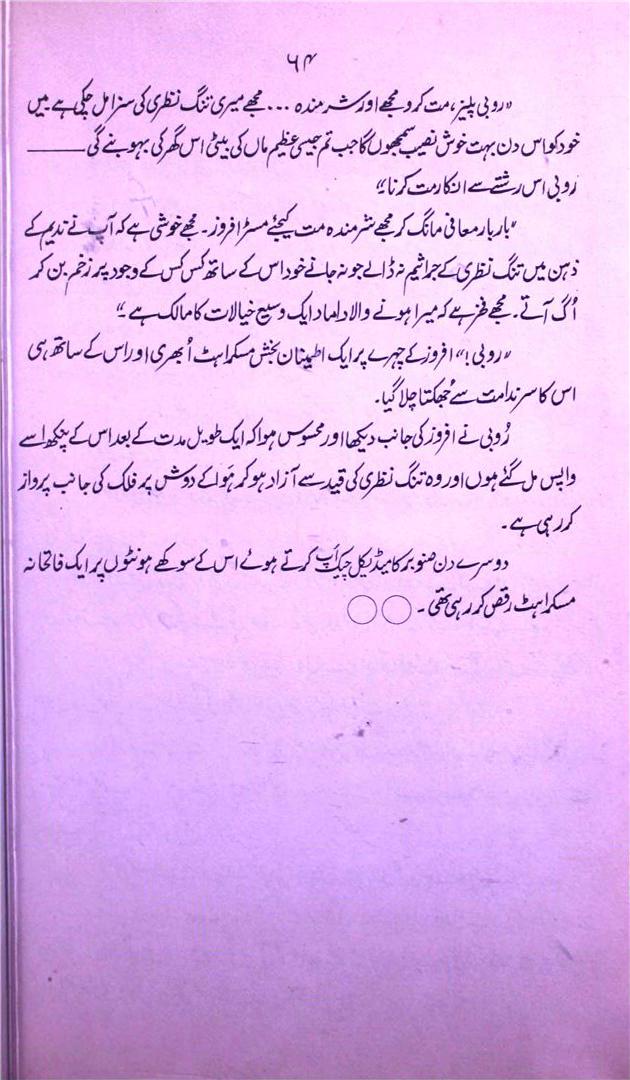 ۶۴
"روبی پلیز، مت کرو مجھے اور شرمندہ ... مجھے میری تنگ نظری کی سزا مل چکی ہے میں
خود کو اس دن بہت خوش نصیب سمجھوں گا جب تم جیسی عظیم ماں کی بیٹی اس گھر کی بہو بنے گی ——
روبی اس رشتے سے انکار مت کرنا۔"
"بار بار معافی مانگ کر مجھے شرمندہ مت کیجئے مسٹر افروز۔ مجھے خوشی ہے کہ آپ نے ندیم کے
ذہن میں تنگ نظری کے جراثیم نہ ڈالے جو نہ جانے خود اس کے ساتھ کس کس کے وجود پر زخم بن کر
اُگ آتے۔ مجھے فخر ہے کہ میرا ہونے والا داماد ایک وسیع خیالات کا مالک ہے۔"
"روبی!" افروز کے چہرے پر ایک اطمینان بخش مسکراہٹ اُبھری اور اس کے ساتھ ہی
اس کا سر ندامت سے جُھکتا چلا گیا۔
رُوبی نے افروز کی جانب دیکھا اور محسوس ہوا کہ ایک طویل مدت کے بعد اس کے پنکھ اسے
واپس مل گئے ہوں اور وہ تنگ نظری کی قید سے آزاد ہو کر ہَوا کے دوش پر فلک کی جانب پرواز
کر رہی ہے۔
دوسرے دن صنوبر کا میڈیکل چیک اَپ کرتے ہوئے اس کے سوکھے ہونٹوں پر ایک فاتحانہ
مسکراہٹ رقص کر رہی تھی۔ ○○